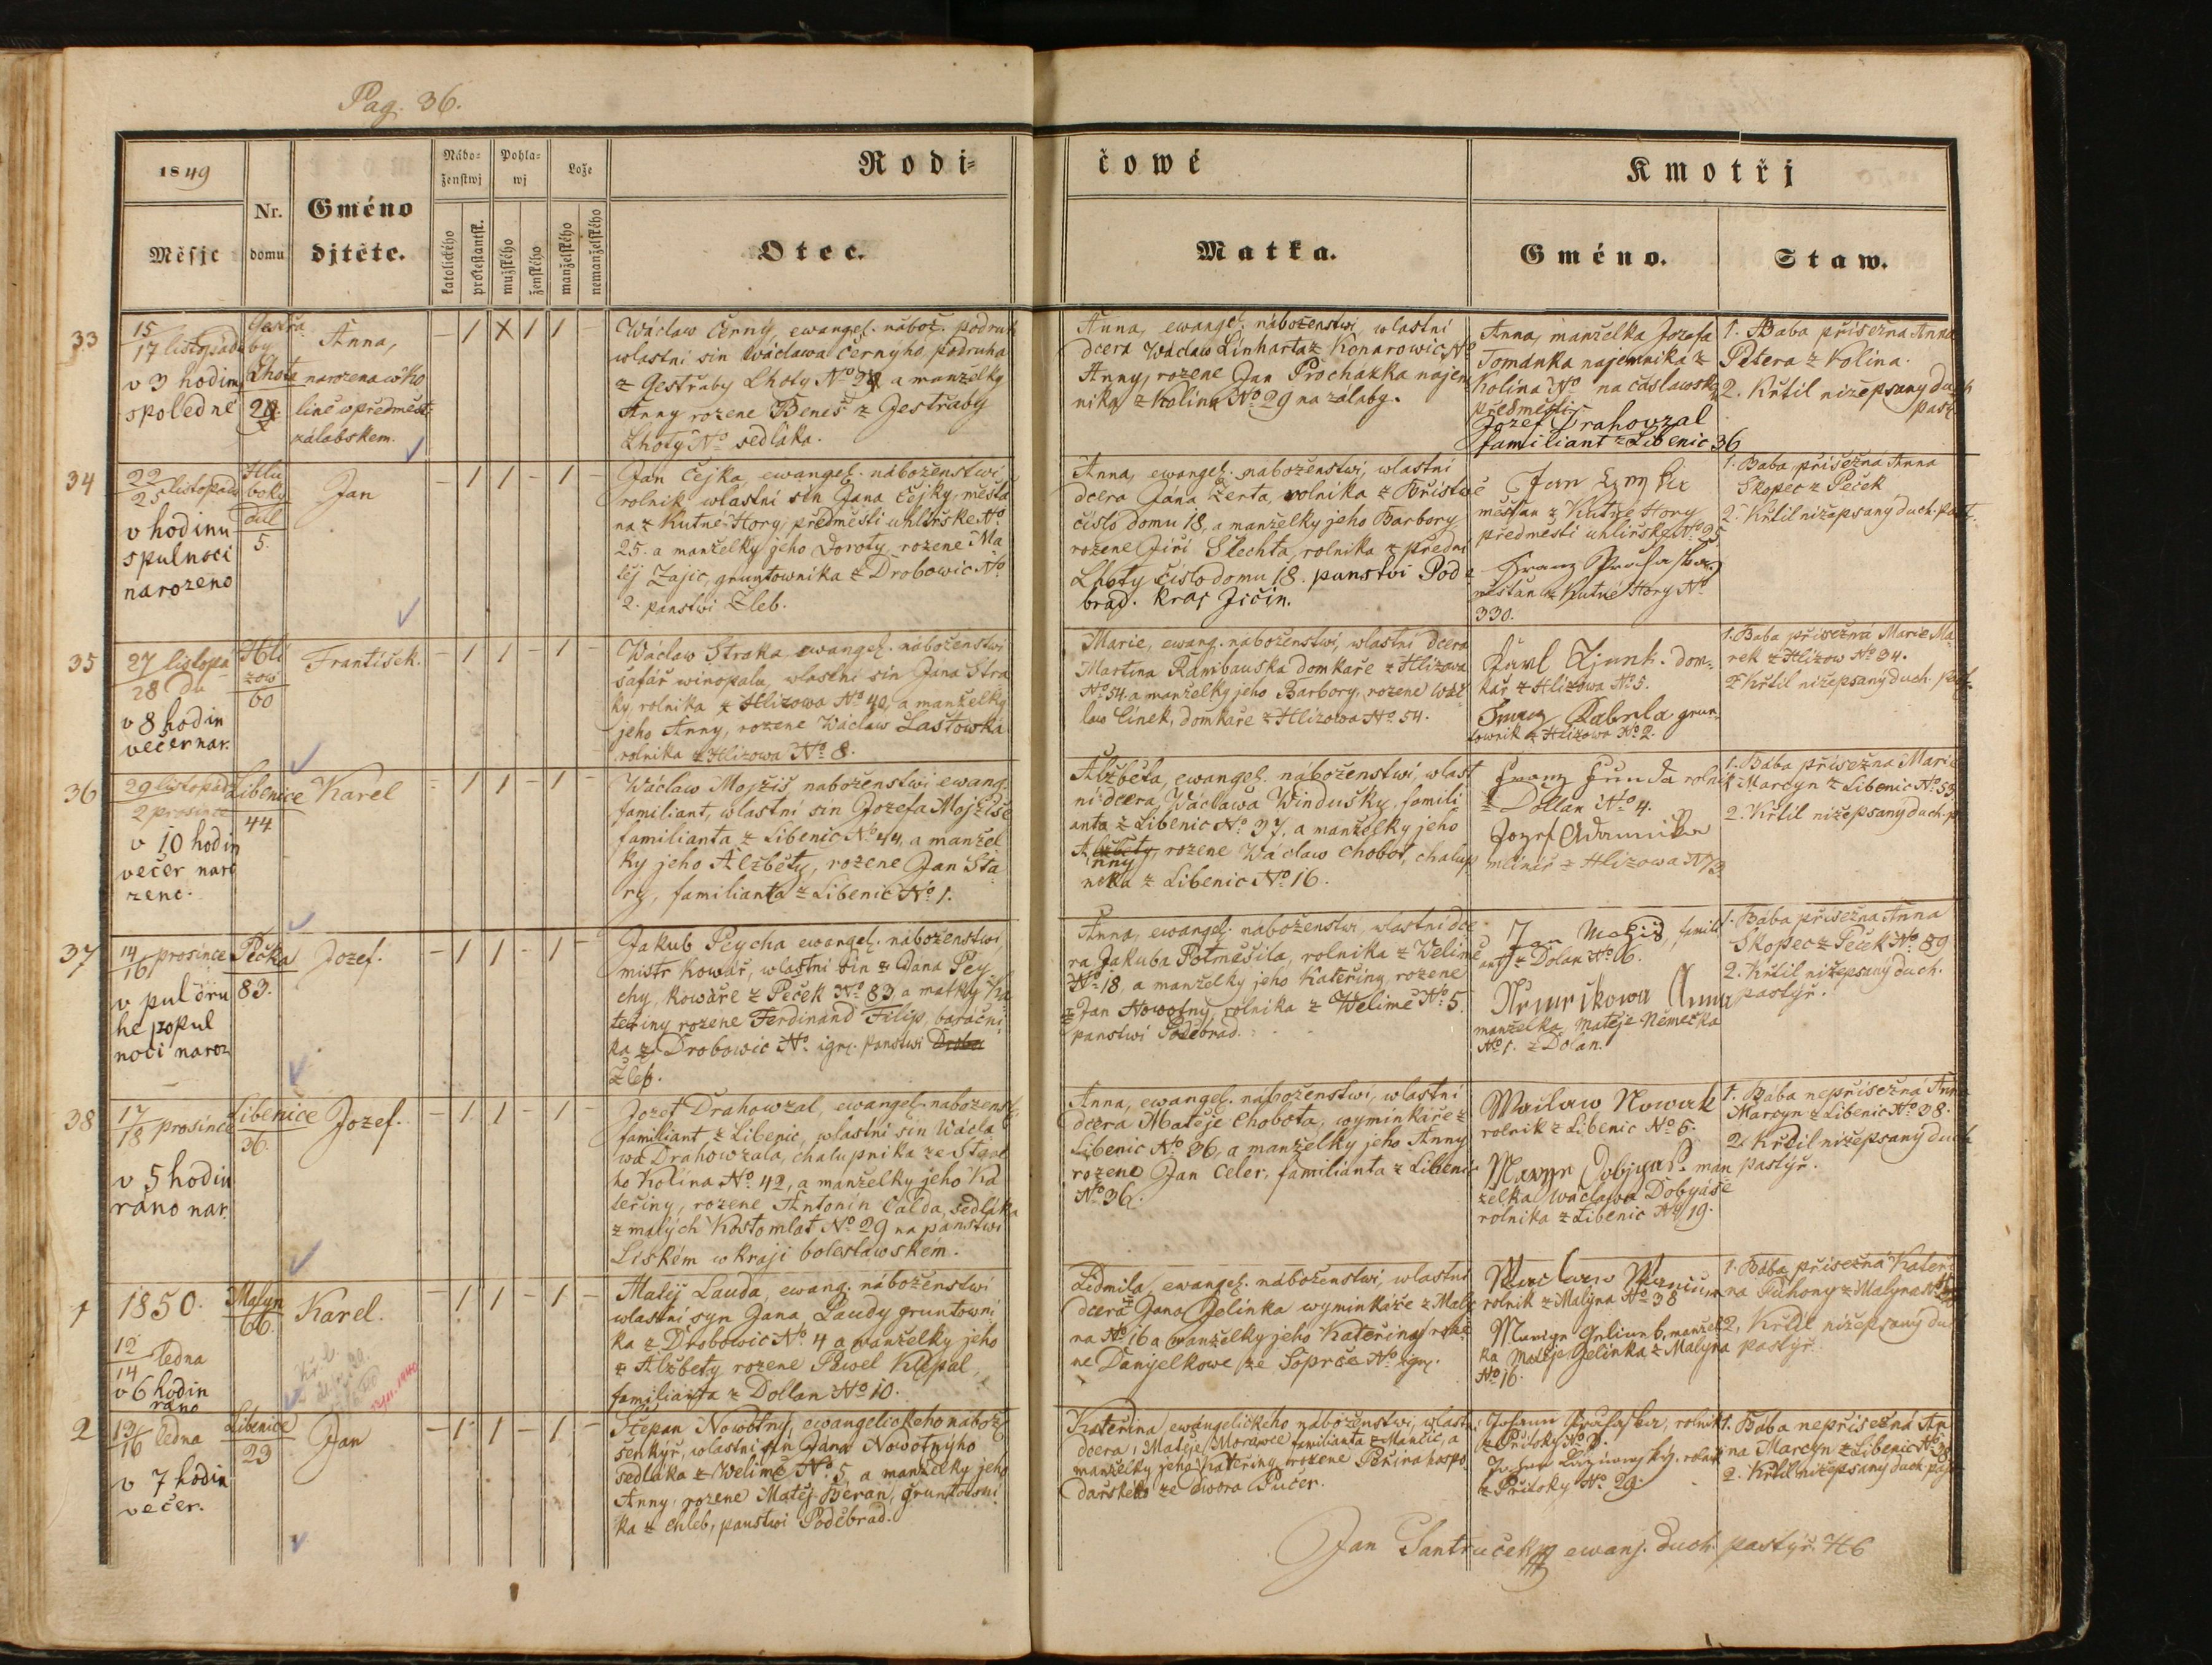 Pag. 36.
1849
Měsjc
Nr. domu
Gméno djtěte.
Nábo-ženstwj
katolického
protestantsk.
Pohla-wj
mužského
ženského
Lože
manželského
nemanželského
Rodi-
čowé
Otec.
Matka.
Kmotřj
Gméno.
Staw.
33
15/17 listopadu
v 3 hodin
spoledne
Gestřa
by
Lhota
Anna,
narozena w Ko
line w předměst
zálabskem.
— 1 X 1 1 —
Wáclaw Černý, ewangel. nábož. podruh
wlastní sin Wáclawa Černýho, podruha
z Gestřaby Lhoty No a manželky
Anny rozene Beneš z Jestřaby
Lhoty No sedláka.
Anna, ewangel. náboženstwi, wlastní
dcera Wáclaw Linharta z Konarowic No
Anny, rozene Jan Procházka najem
nika z Kolína No 29 na zálaby.
Anna, manželka Jozefa
Tománka najemnika z
Kolína No na čáslawsk
předměsti
Jozef Drahowzal
familiant z Libenic 36
1. Baba přísežna Anna
Petera z Kolina.
2. Křtil nížepsaný duch
past.
34
22/25 listopadu
v hodinu
spulnoci
narozeno
Hlu
boky
důl
5.
Jan
— 1 1 — 1 —
Jan Čejka, ewangel. náboženstwi
rolnik wlastní sin Jana Čejky, měšťa
na z Kutné-Hory předměsti uhlířske No
25. a manželky jeho Doroty rozene Ma
těj Zajic, gruntownika z Drobowic No
2. panstwi Žleb.
Anna, ewangel. naboženstwi, wlastní
dcera Jána Žerta, rolníka z Bříství
číslo domu 18, a manželky jeho Barbory
rozene Jiří Šlechta, rolníka z předni
Lhoty číslo domu 18. panstvi Pode
brad. kraj Jičin.
Jan
měšťan z Kutne Hory
předměsti uhlirske No 25
Franz
měšťan z Kutné Hory No
330.
1. Baba přísežná Anna
Skopec z Peček
2. Křtil nížepsaný duch. past.
35
27/28 listopadu
v 8 hodin
večer nar.
Hli
zow
60
František.
— 1 1 — 1 —
Wáclaw Straka ewangel. náboženstwi
šafář winopalu, wlastní sin Jana Stra
ky, rolníka z Hlizowa No 40, a manželky
jeho Anny, rozene Wáclaw Lašťowka
rolníka z Hlizowa No 8.
Marie, ewang. náboženstwí, wlastní dcera
Martina Rambauska domkaře z Hlizowa
No 54. a manželky jeho Barbory, rozene Wác
law Cinek, domkaře z Hlizowa No 54.
Karl dom-
kář z Hlizowa No 5.
Kabrla grun
townik z Hlizowa No 2.
1. Baba přísežná Marie Ma
rek z Hlizow No 34.
2. Křtil nížepsaný duch. past.
36
29 listopadu
2 prosince
v 10 hodin
večer naro
zene.
Libenice
44
Karel
— 1 1 — 1 —
Wáclaw Mojžíš, naboženstwi ewang.
familiant, wlastní sin Jozefa Mojžíše
familianta z Libenic No 44, a manžel
ky jeho Alžběty, rozene Jan Sta
ry, familianta z Libenic No 1.
Alžběta, ewangel. náboženstwi, wlast
ní dcera, Wáclawa Windušky, famili
anta z Libenic No 37, a manželky jeho
Alžběty, nny rozene Wáclaw Chobot, chalup
nika z Libenic No 16.
Franz rolnik
z Dollan No 4.
Jozef Adamička
mlinář z Hlizowa No 3
1. Baba přísežna Marie
Marcyn z Libenic No 53
2. Křtil nižepsaný duch. p.
37
14/16 prosince
v pul dru
he popul
noci naroz
Pečka
83.
Jozef.
— 1 1 — 1 —
Jakub Peycha ewangel. náboženstwi,
mistr kowář, wlastní sin z Jana Pey
chy, kowáře z Peček No 83 a matky Ka
teřiny rozene Ferdinand Filip, baráčni
ka z Drobowic No ign. panstwi
Žleb.
Anna, ewangel. naboženstwi, wlastní dce
ra Jakuba Potměšila, rolníka z Welimě
No 18, a manželky jeho Kateřiny, rozene
z Jan Nowotný, rolníka z Welimě No 5.
panstwi Poděbrad.
Jan famili
ant z Dolan No 6.
Němečkowa Anna
manželka Matěje Němečka
No 1. z Dolan.
1. Bába přísežna Anna
Skopec z Peček No 89
2. Křtil nížepsaný duch.
pastýř.
38
17/18 prosince
v 5 hodin
ráno nar.
Libenice
36.
Jozef.
— 1 1 — 1 —
Jozef Drahowzal, ewangel. nabožens.
familiant z Libenic, wlastní sin Wácla
wa Drahowzala, chalupníka ze Star
ho Kolína No 42, a manželky jeho Ka
teřiny, rozene Antonín Calda, sedláka
z malých Kostomlat No 29 na panstwi
Liském w kraji boleslawském.
Anna, ewangel. náboženstwí, wlastní
dcera Matěje Chobota, wyminkáře z
Libenic No 36, a manželky jeho Anny
rozene Jan Celer, familianta z Libenic
No 36.
Waclaw Nowak
rolnik z Libenic No 6.
man
želka Wáclawa Dobyáše
rolníka z Libenic No 19.
1. Bába nepřisežná Anna
Marcyn z Libenic No 38.
2. Křtil nížepsaný duch
pastýř.
1
1850.
12/14 ledna
v 6 hodin
ráno
Malyn
66.
Karel.
— 1 1 — 1 —
Matěj Lauda, ewang. náboženstwi
wlastní syn Jana Laudy gruntowni
ka z Drobowic No 4 a manželky jeho
z Alžbety rozene Pawel Klepal,
familianta z Dollan No 10.
Lidmila, ewangel. náboženstwi, wlastní
dcera Jana Jelínka wyminkáře z Maly
na No 16 a manželky jeho Kateřiny rože
ne Danyelkowe ze Soprče No ign.
Waclaw
rolnik z Malýna No 38
manžel
ka Matěje Jelínka z Malyna
No 16.
1. Bába přísežná Kateři
na Puhony z Malyna No
2, Křtil nížepsaný du
pastýř.
2
13/16 ledna
v 7 hodin
večer.
Libenice
23
Jan
— 1 1 — 1 —
Štěpan Nowotný, ewangelickeho nabož
šenkýř, wlastní sin Jána Nowotnýho
sedláka z Welimě No 5, a manželky jeho
Anny, rozene Matěj Beran, gruntowni
ka z Chleb, panstwi Poděbrad.
Kateřina, ewangelického náboženstwi, wlastn.
dcera, Matěje Morawce familianta z Mančic, a
manželky jeho Kateřiny rozene Peřina hospo
dařskeho ze dwora Pučer.
Johann rolnik
z Přítoky No
rolnik
z Přítoky No 29.
1. Baba nepřisežná An
na Marcyn z Libenic No 38
2. Křtil nížepsaný duch. pas
Jan Šantruček ewanj. duch. pastýř. HC